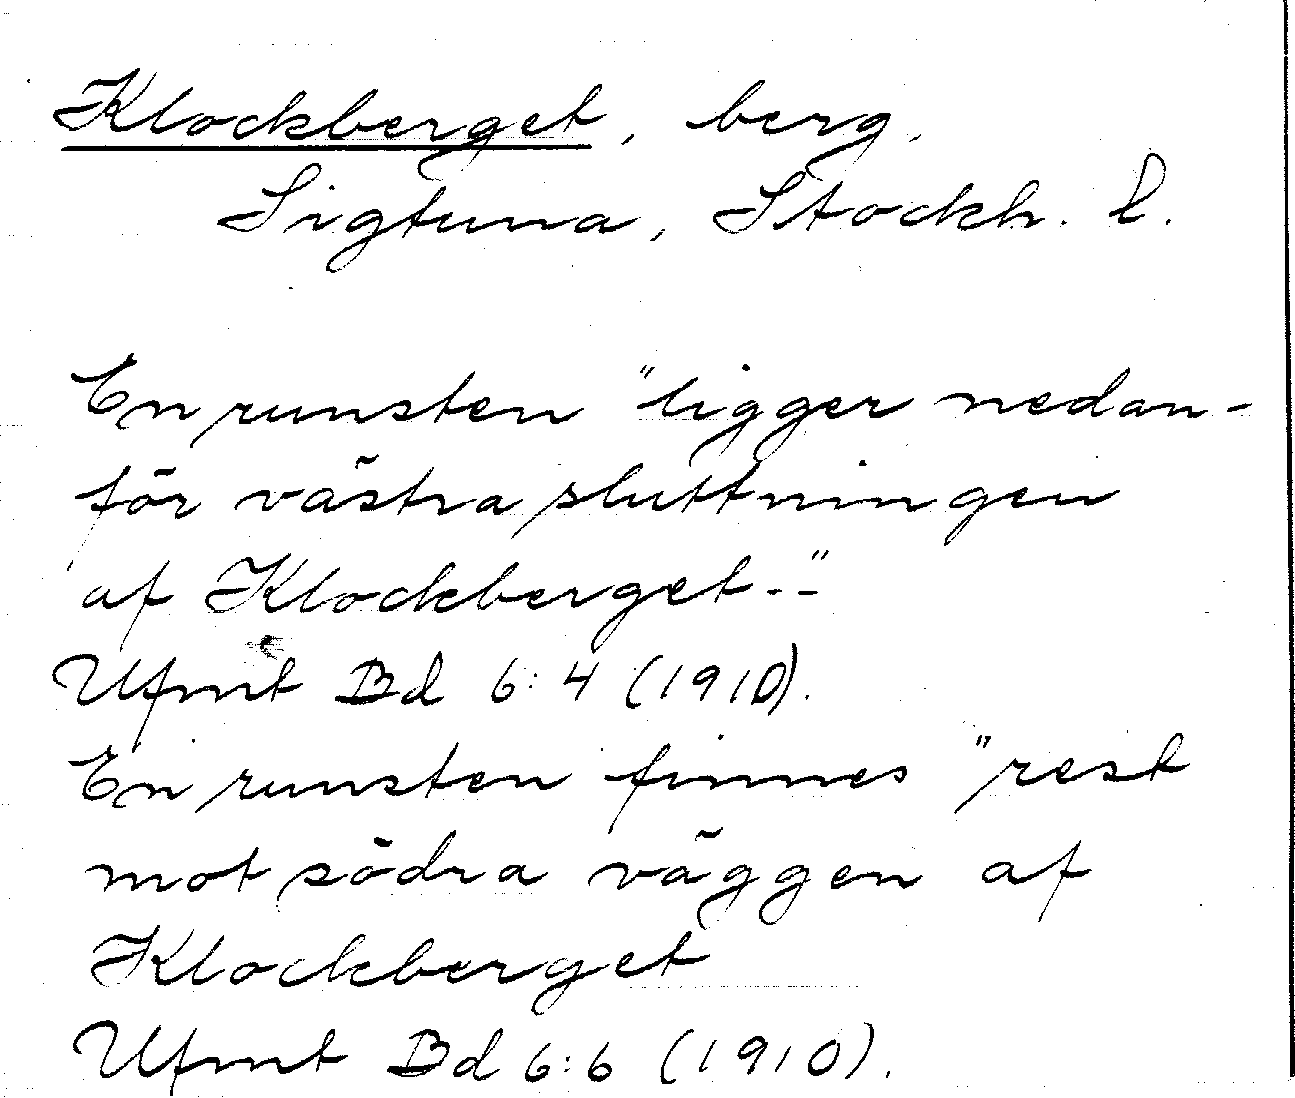 Klockberget, berg.
Sigtuna, Stockh. l.
En runsten "ligger nedan-
för västra sluttningen
af Klockberget--"
Ufmt Bd 6:4 (1910).
En runsten finnes "rest
mot södra väggen af
Klockberget
Ufmt Bd 6:6 (1910).